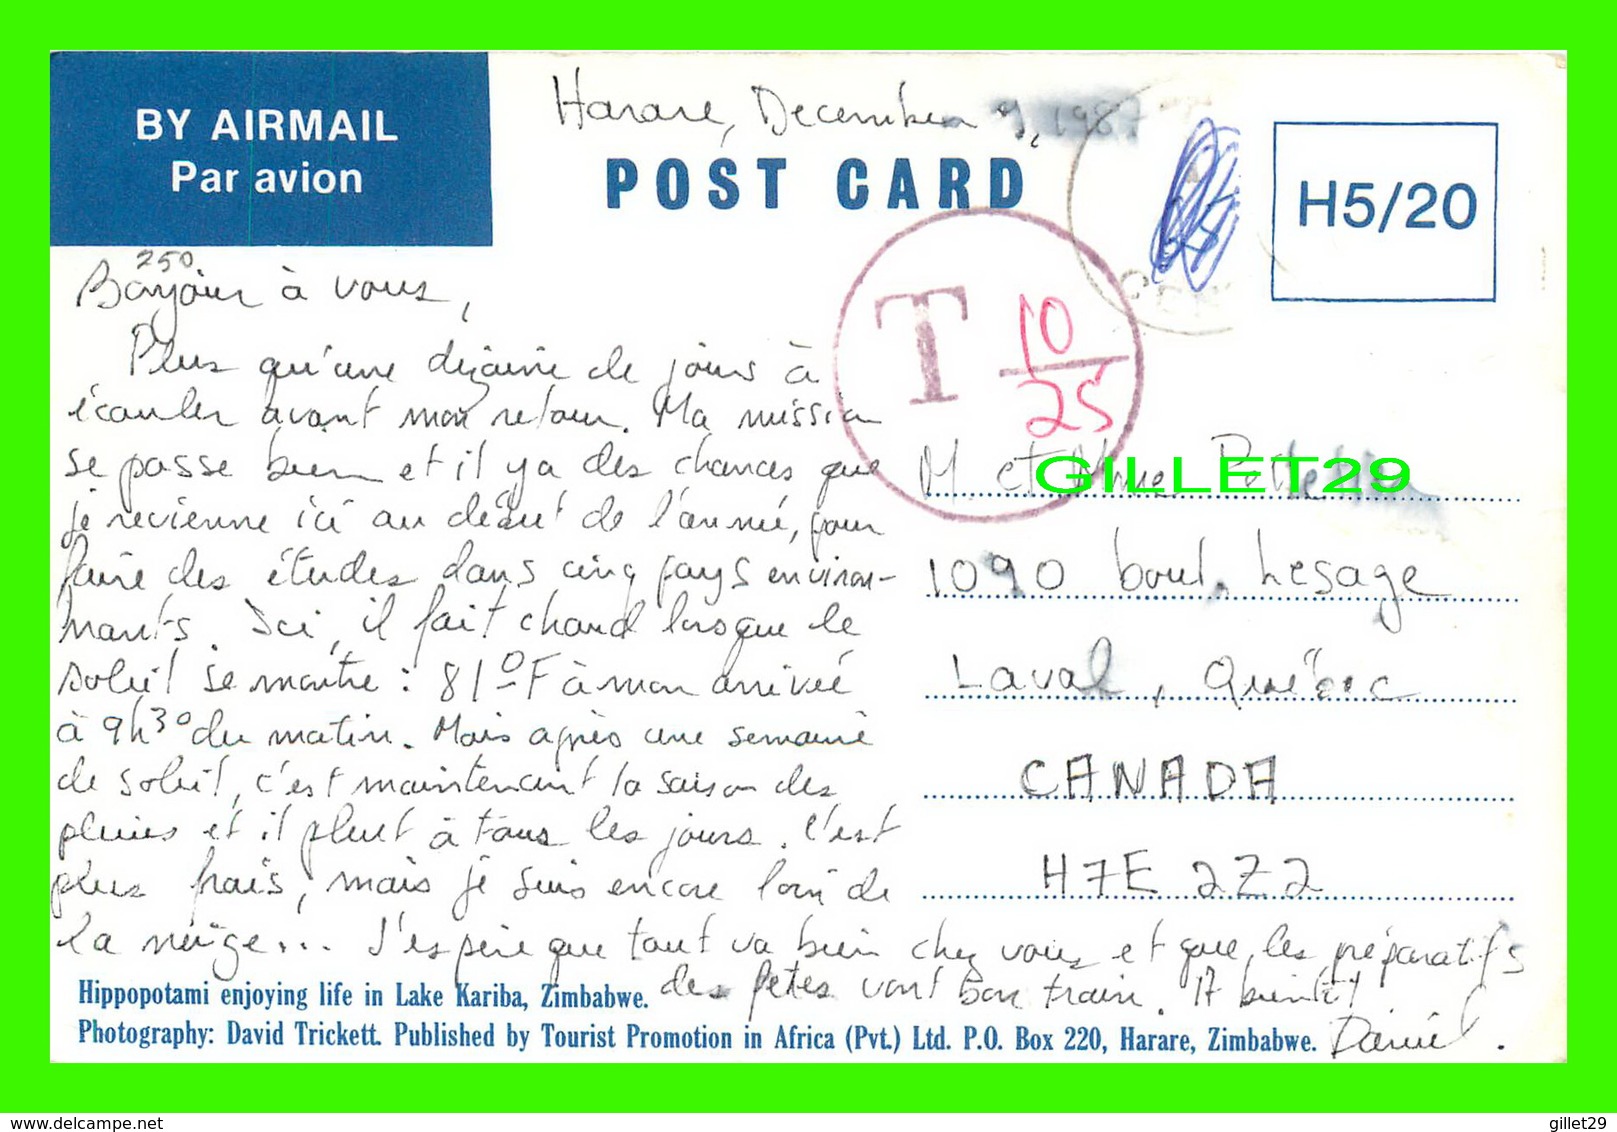 BY AIRMAIL
Par avion
Harare, December 9, 1987
POST CARD
H5/20
250
Bonjour à vous,
Plus qu'une dizaine de jours à
écouler avant mon retour. Ma mission
se passe bien et il y a des chances que
je revienne ici au début de l'année, pour
faire des études dans cinq pays environ-
nants. Ici, il fait chaud lorsque le
soleil se montre : 81°F à mon arrivée
à 9h30 du matin. Mais après une semaine
de soleil, c'est maintenant la saison des
pluies et il pleut à tous les jours. C'est
plus frais, mais je suis encore loin de
la neige... J'espère que tout va bien chez vous et que les préparatifs
des fêtes vont bon train. A bientôt
Daniel.
T 10
25
M. et Mme
GILLET29
1090 boul. Lesage
Laval, Québec
CANADA
H7E 2Z2
Hippopotami enjoying life in Lake Kariba, Zimbabwe.
Photography: David Trickett. Published by Tourist Promotion in Africa (Pvt.) Ltd. P.O. Box 220, Harare, Zimbabwe.
www.delcampe.net
gillet29